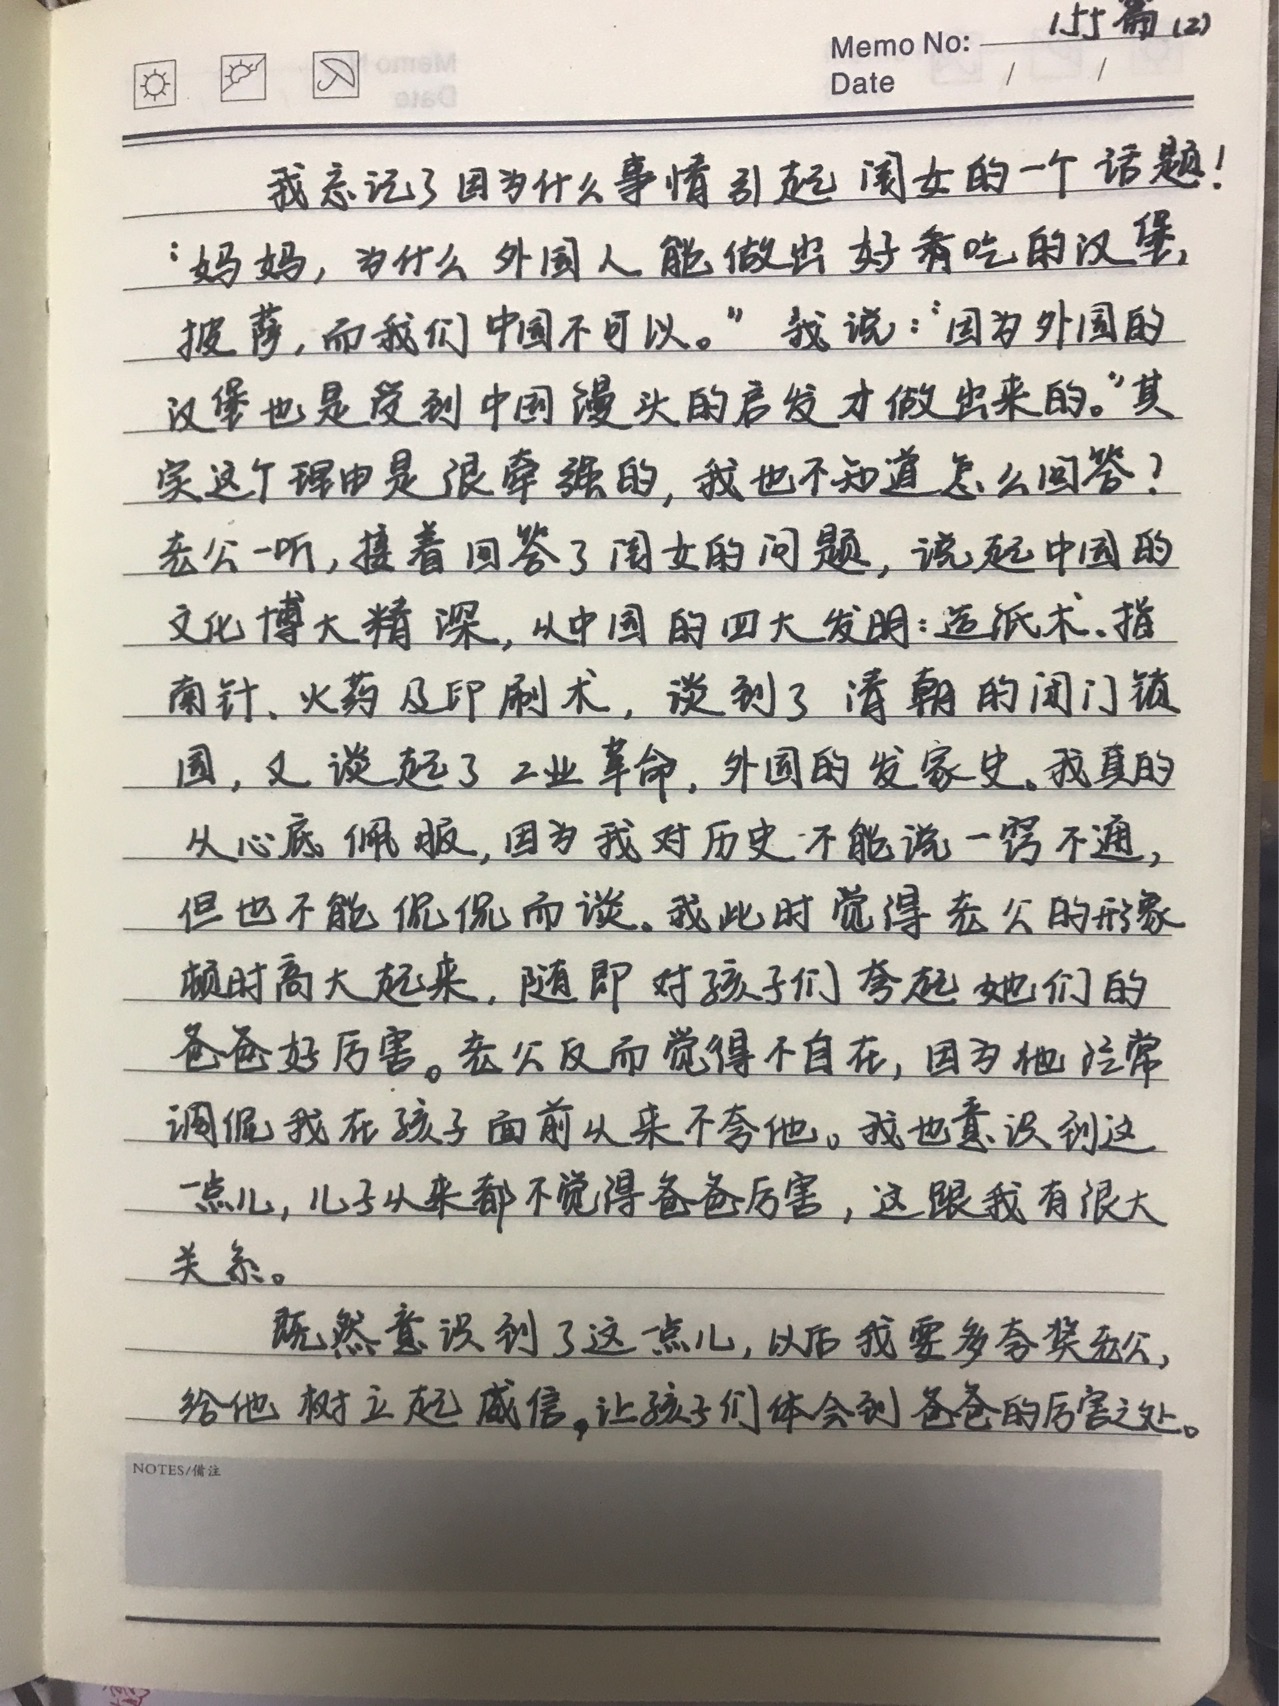 Memo No: 155篇(2)
Date / /
我忘记了因为什么事情引起闺女的一个话题!
"妈妈,为什么外国人能做出好看吃的汉堡,
披萨,而我们中国不可以。"我说:"因为外国的
汉堡也是受到中国馒头的启发才做出来的。"其
实这个理由是很牵强的,我也不知道怎么回答?
老公一听,接着回答了闺女的问题,说起中国的
文化博大精深,从中国的四大发明:造纸术、指
南针、火药及印刷术,谈到了清朝的闭门锁
国,又谈起了工业革命,外国的发家史。我真的
从心底佩服,因为我对历史不能说一窍不通,
但也不能侃侃而谈。我此时觉得老公的形象
顿时高大起来,随即对孩子们夸起她们的
爸爸好厉害。老公反而觉得不自在,因为他经常
调侃我在孩子面前从来不夸他。我也意识到这
一点儿,儿子从来都不觉得爸爸厉害,这跟我有很大
关系。
既然意识到了这一点儿,以后我要多夸奖老公,
给他树立起威信,让孩子们体会到爸爸的厉害之处。
NOTES/備注